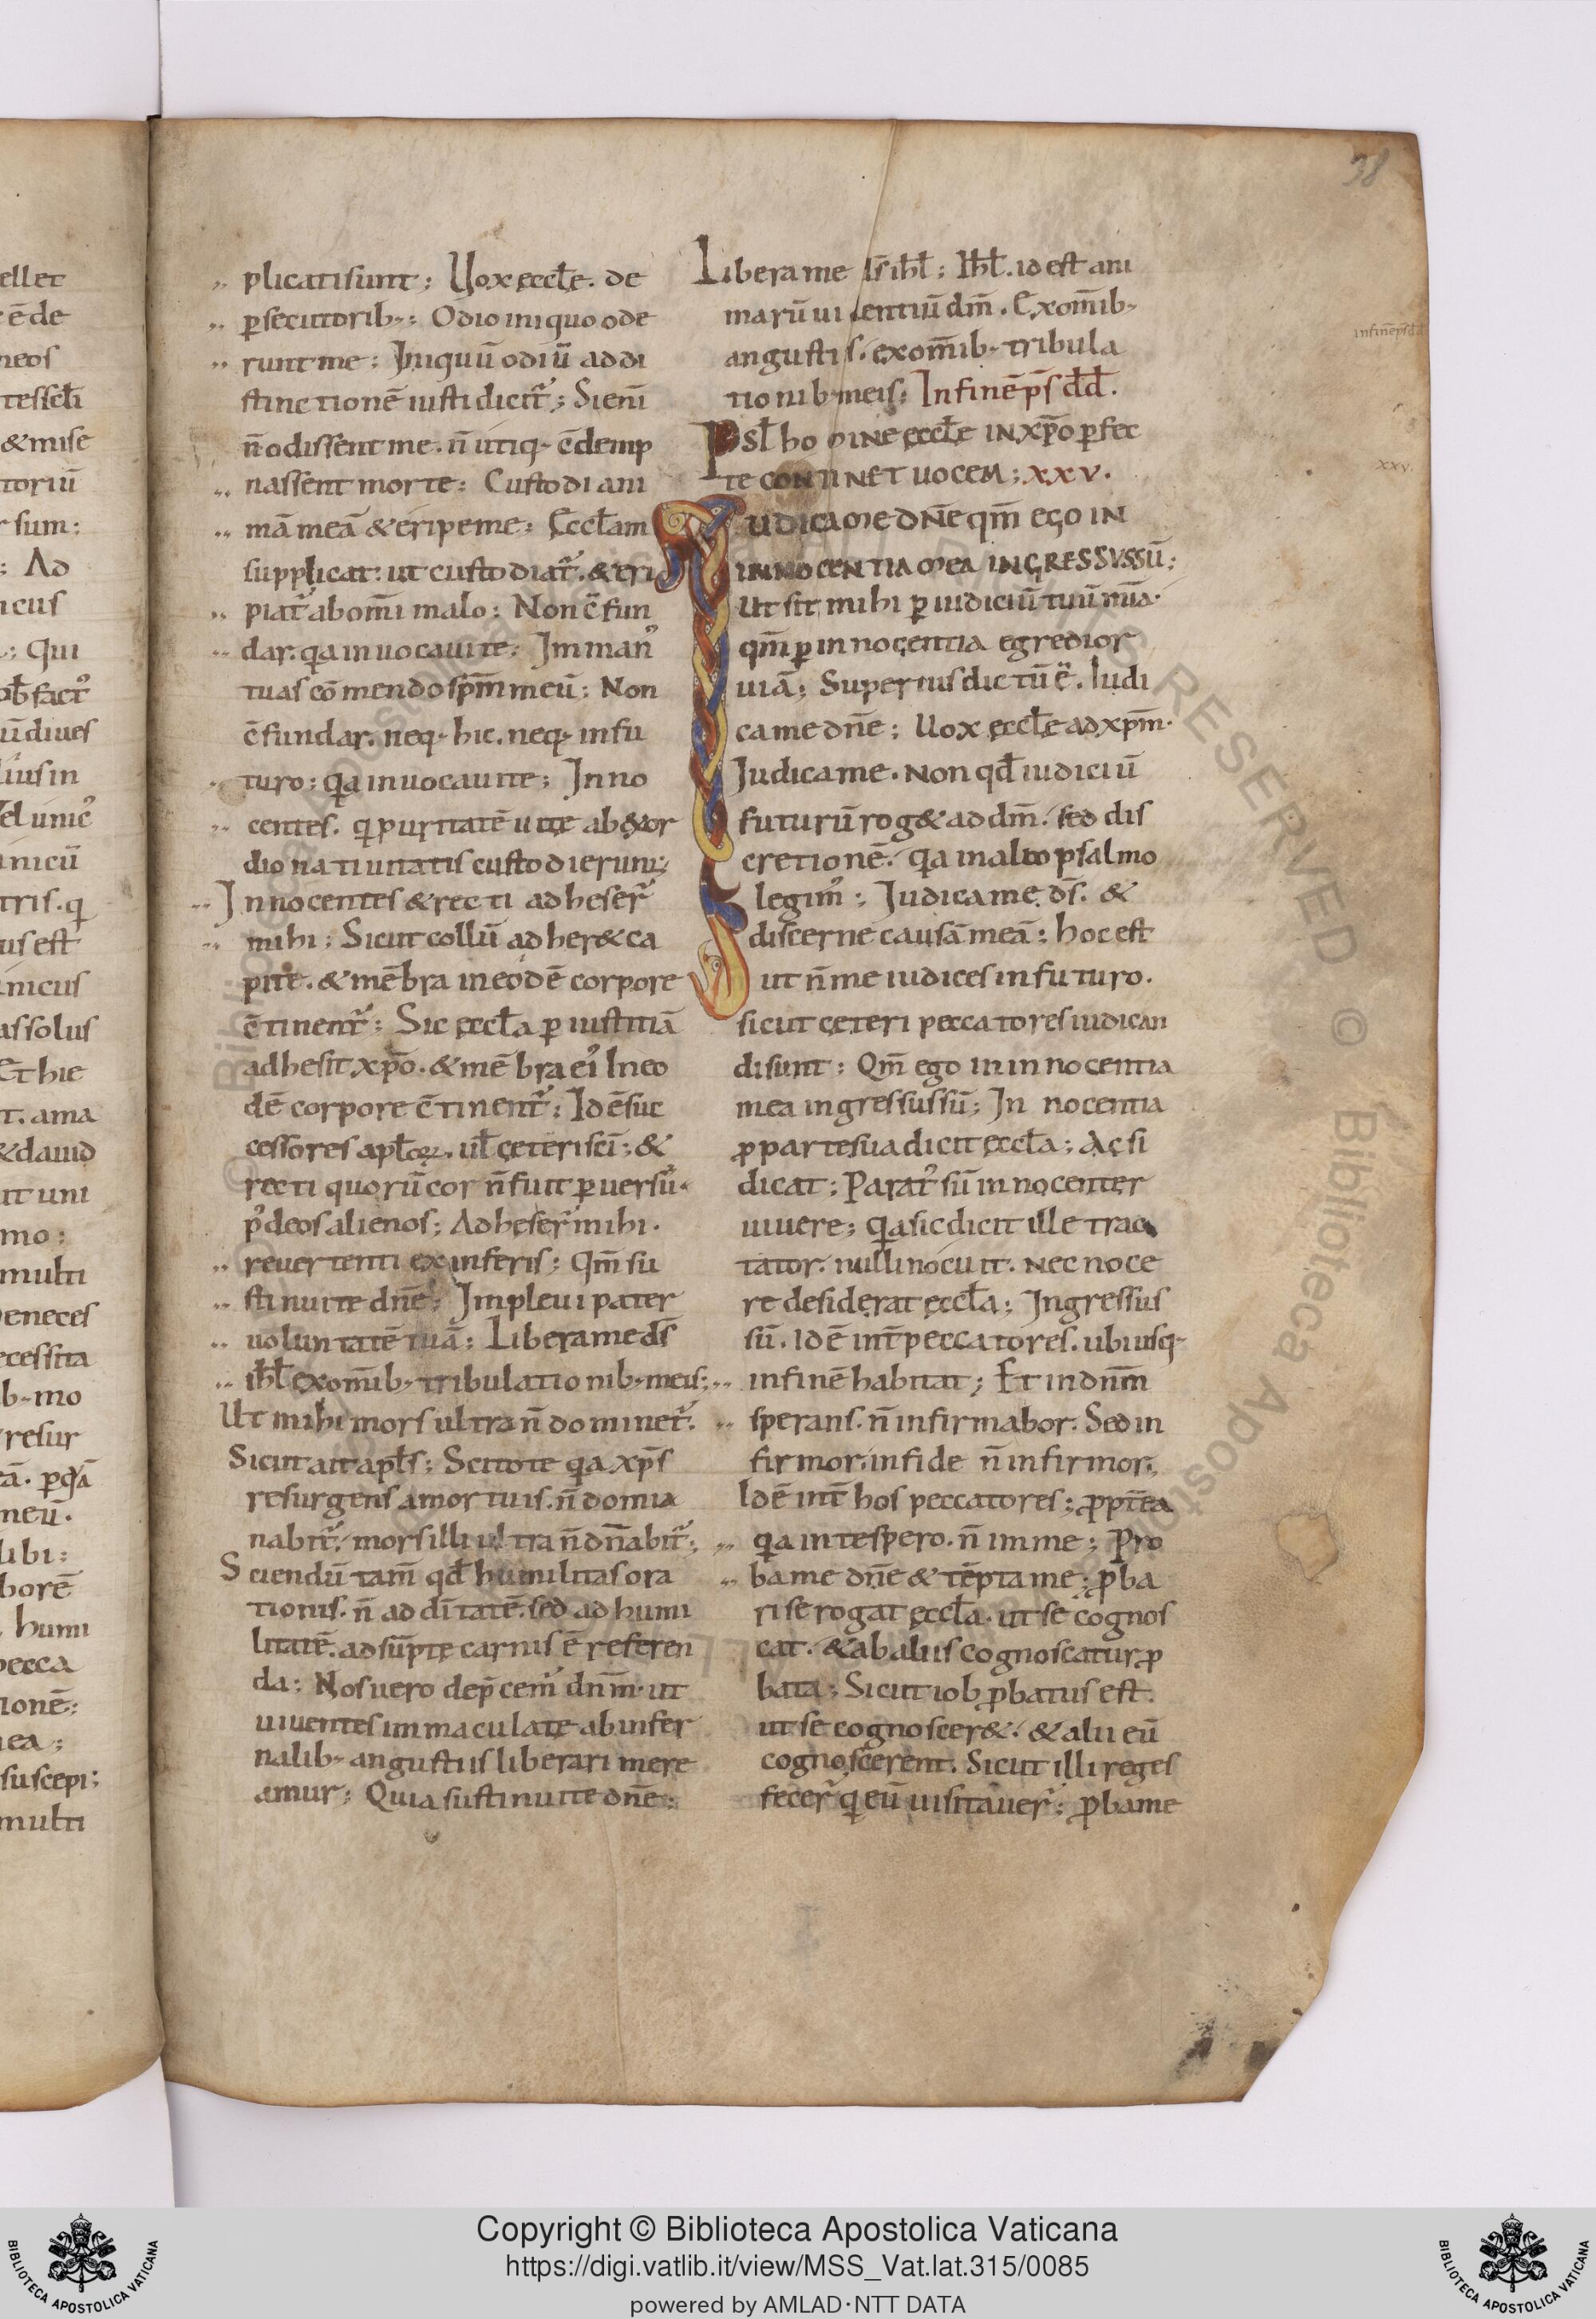 ellet
ē de
neos
& mise
toriū
sum:
; Ad
icus
; Qui
ūdiues
us in
unic᾿
nicū
tris. q
us est
nicus
assolus
Et hic
t. ama
& dauid
it uni
mo:
multi
eneces
ecessita
b- mo
resur
meū.
libi:
borē
humi
pecca
ionē:
ea;
suscepi:
multi
plicati sunt; Uox eccłe. de
p̄secutorib-: Odio iniquo ode
runt me; Iniquū odiū ad di
stinctionē iusti dicit᷑; Si eni̅
n̄ odissent me. n̄ utiq- c̄demp
nassent morte: Custodi ani
mā meā & eripe me: Eccłam
supplicat: ut custodiat᷑. & eri
piat᷑ ab om̄i malo: Non c̄fun
dar. qa inuocaui te; In man᾿
tuas cōmendo sp̄m meū; Non
c̄fundar. neq- hic. neq- in fu
turo: qa inuocaui te; Inno
centes. qi puritatē uitę ab exor
dio natiuitatis custodierunt;
Innocentes & recti adheser᷑
mihi; Sicut collū adher& ca
piti. & mēbra in eodē corpore
c̄tinent᷑; Sic eccła p̄ iustitiā
adhesit xp̄o. & mēbra ei᾿ In eo
dē corpore c̄tinent᷑; Id ē suc
cessores apłoꝝ. uł cęteri sc̄i; &
recti quorū cor n̄ fuit p̄uersū.
p᾿ deos alienos; Adheser᷑ mihi.
reuertenti ex inferis; Qm̄ su
stinui te dn̄e; Impleui pater
uoluntatē tuā; Libera me ds̄
ihł ex om̄ib- tribulationib- meis;
Ut mihi mors ultra n̄ dominet᷑.
Sicut ait apłs; Scitote qa xp̄s
resurgens a mortuis. n̄ domi
nabit᷑. mors illi ultra n̄ dn̄abit᷑;
Sciendū tam̄ qd̄ humilitas ora
tionis. n̄ ad diitatē. sed ad humi
litatē. adsūptę carnis ē referen
da; Nos uero dep̄cem᾿ dn̄m. ut
uiuentes immaculatę ab infer
nalib- angustiis liberari mere
amur; Quia sustinui te dn̄e;
Libera me Is̄ ihł; Ihł. id est ani
marū uiuentiū dm̄. Ex om̄ib-
angustiis. ex om̄ib- tribula
tionib- meis; In finē ps̄ dd̄.
Psł hoMINE eccłe IN xp̄o p̄fec
te CONTINET UOCEM; XXV.
IUDICA ME DN̄E QM̄ EGO IN
INNOCENTIA MEA INGRESSUS SŪ;
Ut sit mihi p̄ iudiciū tuū uita.
qm̄ p̄ innocentia egredior
uiā; Superius dictū ē. Iudi
ca me dn̄e; Uox eccłe ad xp̄m.
Iudica me. Non qd̄ iudiciū
futurū rog& ad dm̄. sed dis
cretionē. qa in alio psalmo
legim᾿; Iudica me ds̄. &
discerne causā meā; hoc est
ut n̄ me iudices in futuro.
sicut cęteri peccatores iudican
di sunt; Qm̄ ego in innocentia
mea ingressus sū; In nocentia
ꝓ parte sua dicit eccła; Ac si
dicat; Parat᾿ sū innocenter
uiuere; qa sic dicit ille trac
tator. nulli nocuit. Nec noce
re desiderat eccła; Ingressus
sū. Id ē int̄ peccatores. ubi usq-
in finē habitat; Et in dn̄m
sperans. n̄ infirmabor. Sed in
firmor. in fide n̄ infirmor;
Id ē int̄ hos peccatores; ꝓpt̄ea
qa in te spero. n̄ in me; Pro
ba me dn̄e & tēpta me; ꝓba
ri se rogat eccła. ut se cognos
cat. & ab aliis cognoscatur ꝓ
bata; Sicut iob ꝓbatus est.
ut se cognoscer&. & alii eū
cognoscerent. Sicut illi reges
fecer᷑ qi eū uisitauer᷑; ꝓba me
38
in finē ps̄ dd̄
xxv.
© Biblioteca Apostolica Vaticana
ALL RIGHTS RESERVED © Biblioteca Apostolica
Copyright © Biblioteca Apostolica Vaticana
https://digi.vatlib.it/view/MSS_Vat.lat.315/0085
powered by AMLAD·NTT DATA
BIBLIOTECA APOSTOLICA VATICANA
BIBLIOTECA APOSTOLICA VATICANA